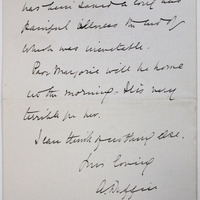 has been saved a long and
painful illness the end of
which was inevitable.
Poor Marjorie will be home
in the morning - It is very
terrible for her.
I can think of nothing else.
Your loving
A. Duffin